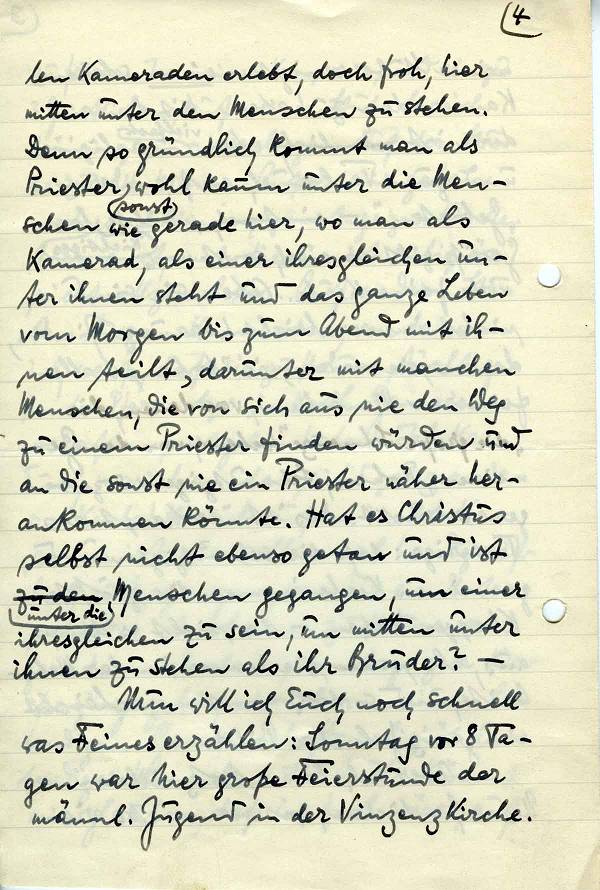 4
len Kameraden erlebt, doch froh, hier
mitten unter den Menschen zu stehen.
Denn so gründlich kommt man als
Priester, wohl kaum unter die Men-
sonst
schen wie gerade hier, wo man als
Kamerad, als einer ihresgleichen un-
ter ihnen steht und das ganze Leben
vom Morgen bis zum Abend mit ih-
nen teilt, darunter mit manchen
Menschen, die von sich aus nie den Weg
zu einem Priester finden würden und
an die sonst nie ein Priester näher her-
ankommen könnte. Hat es Christus
selbst nicht ebenso getan und ist
zu den Menschen gegangen, um einer
unter die
ihresgleichen zu sein, um mitten unter
ihnen zu stehen als ihr Bruder? –
Nun will ich Euch noch schnell
was Feines erzählen: Sonntag vor 8 Ta-
gen war hier große Feierstunde der
männl. Jugend in der Vinzenzkirche.